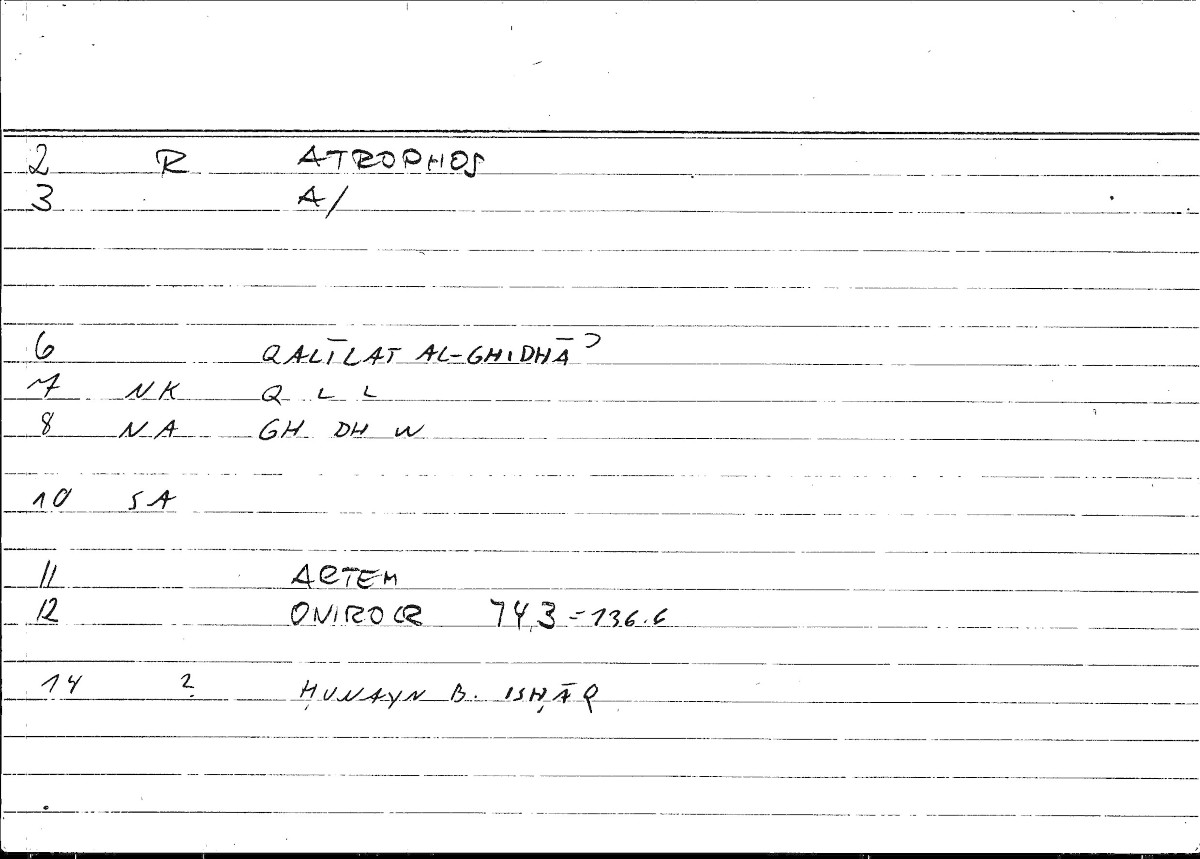 2 R ATROPHOS
3 A/
6 QALĪLAT AL-GHIDHĀʾ
7 NK Q L L
8 NA GH DH W
10 SA
11 ARTEM
12 ONIROCR 74,3 = 136.6
14 ? ḤUNAYN B. ISḤĀQ